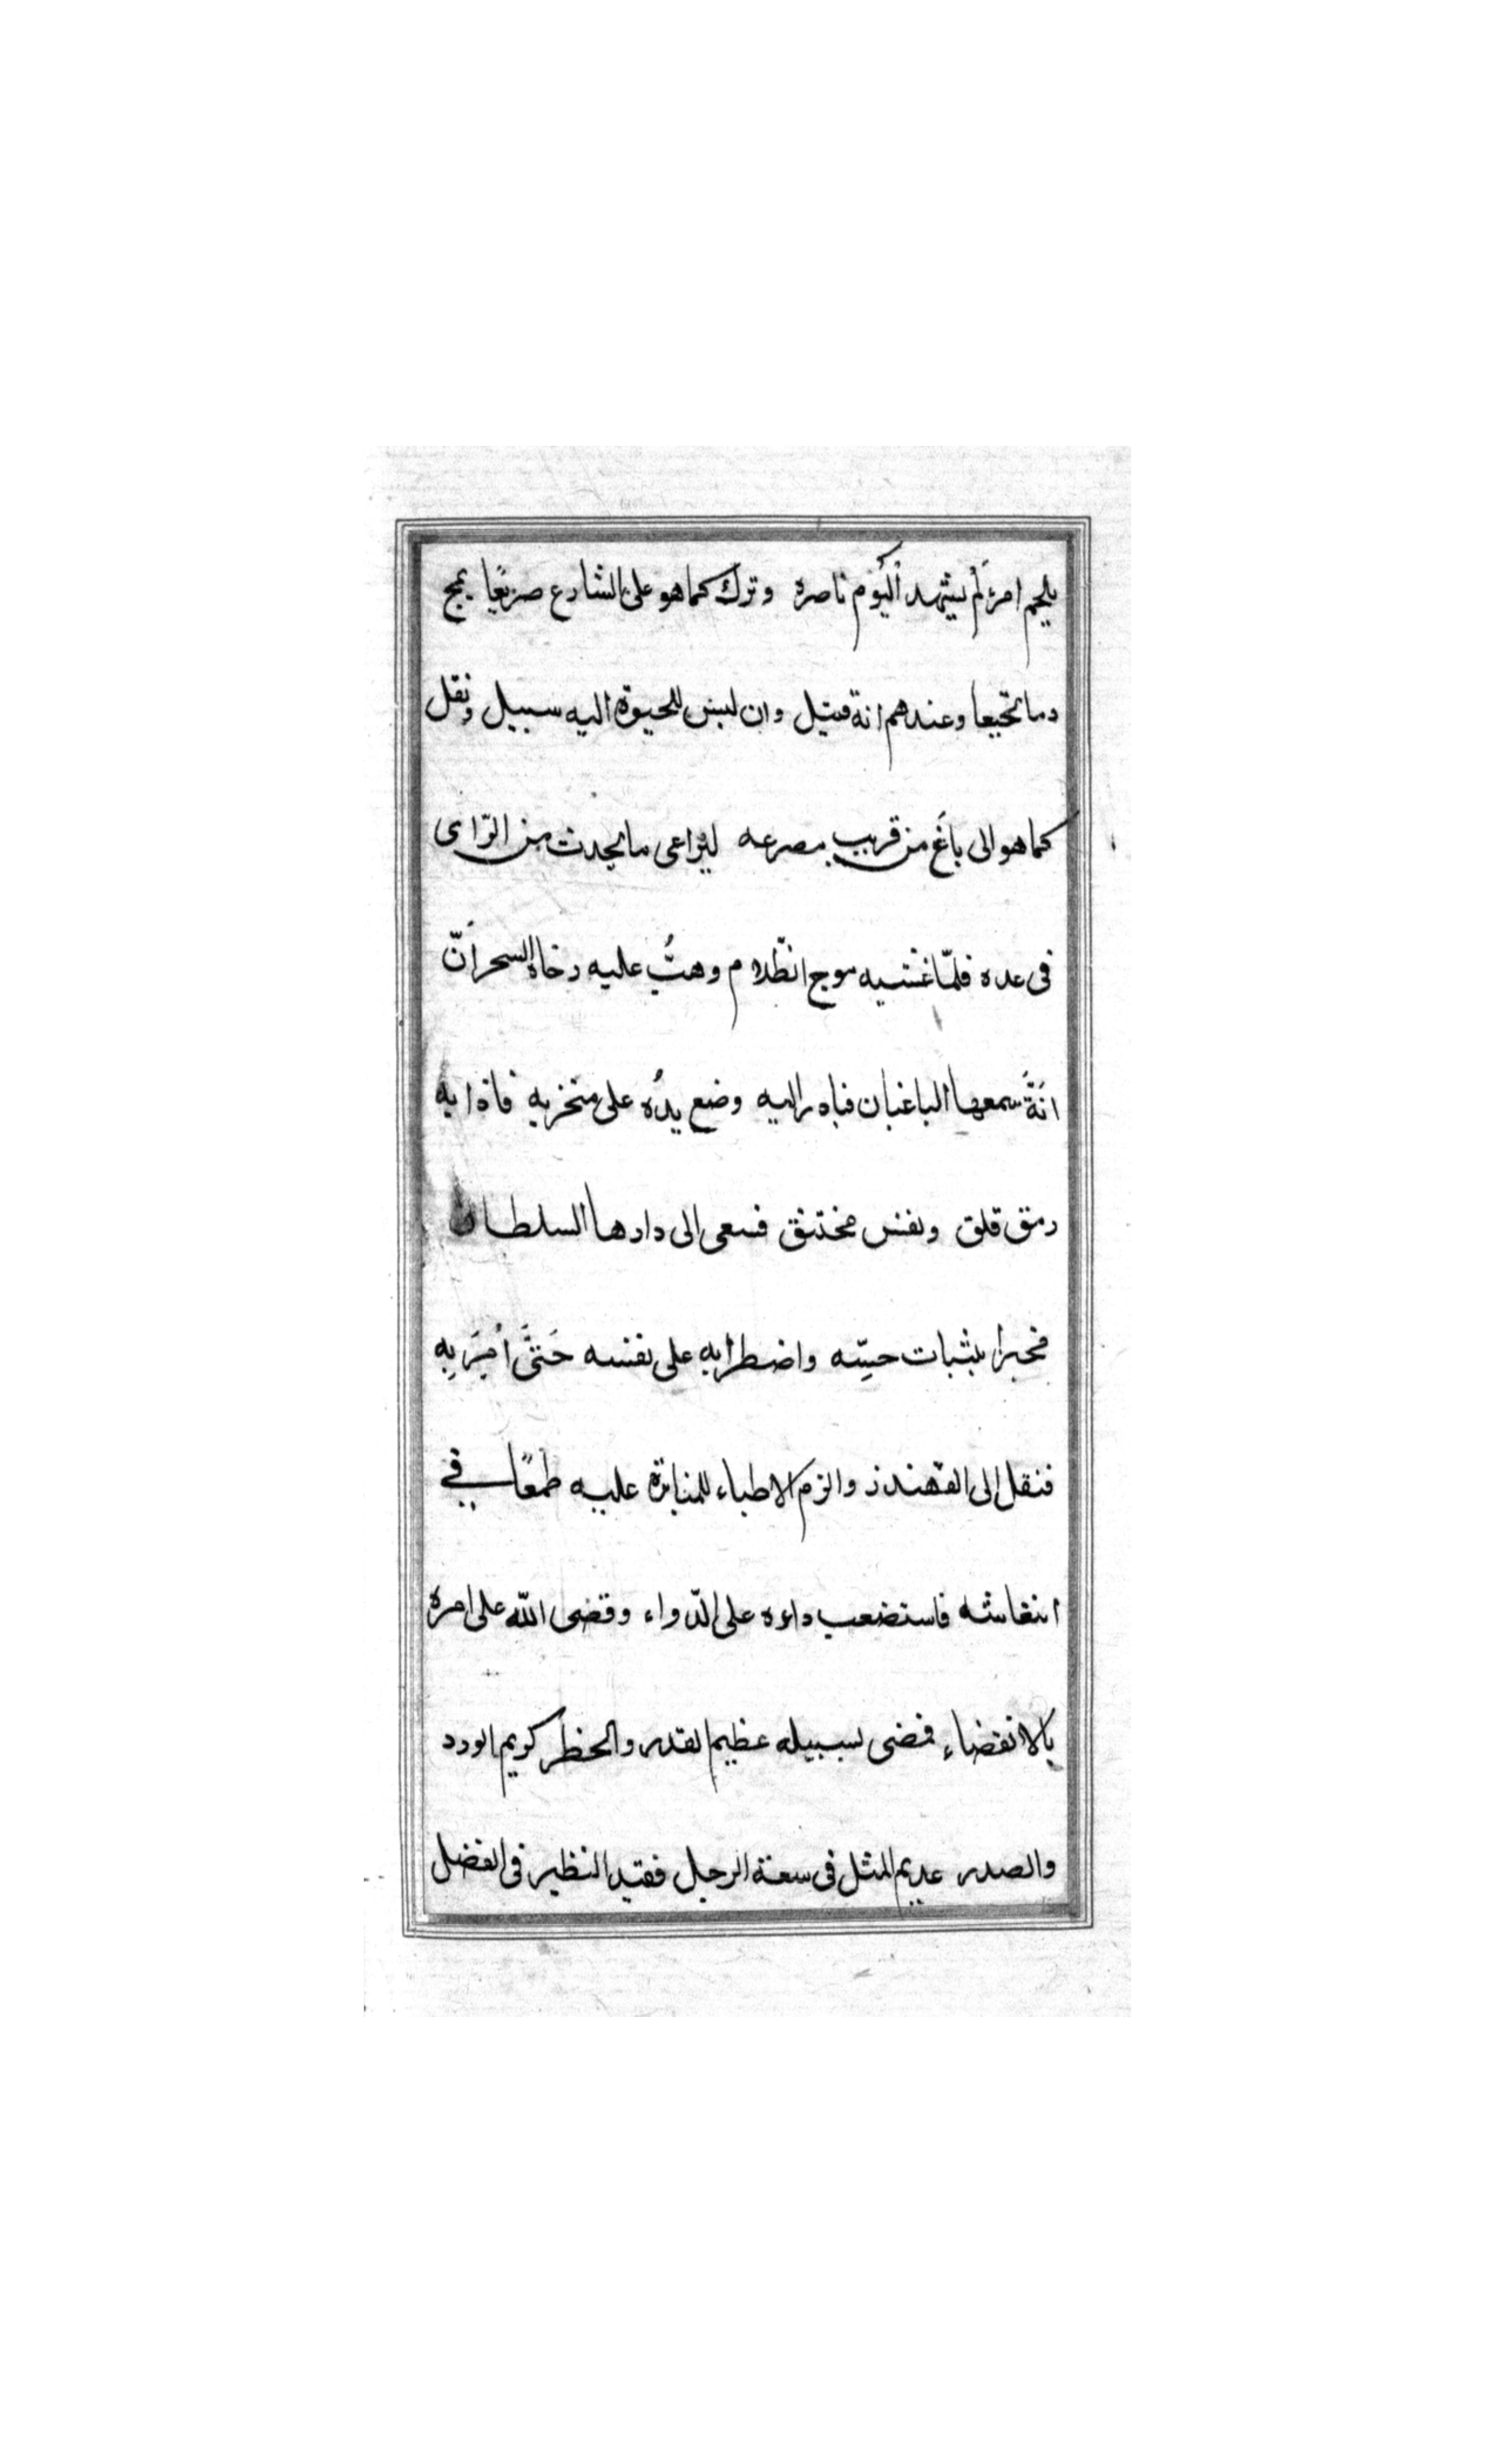 بلحم امرئ لم يشهد اليوم ناصره وترك كما هو على الشارع صريعًا يمج
دما نجيعا وعندهم انه قتيل وان ليس للحيوة اليه سبيل ونقل
كما هو الى باغ من قريب مصرعه ليراعى ما يحدث من الرّاى
فى عده فلمّا غشيه موج الظّلام وهبّ عليه رخاء السحر انّ
انةً سمعها الباغبان فبادر اليه وضع يدُه على منخريه فاذا به
رمق قلق ونفس مختنق فسعى الى دارها السلطان
مخبرا بثبات حسّه واضطرابه على نفسه حَتىَّ اُمِرَ بِه
فنقل الى القهندز والزم الاطباء للمثابرة عليه طمعًا فى
انتعاشه فاستصعب داؤه على الدّواء وقضى الله على امره
بالانقضاء فمضى لسبيله عظيم القدر والخطر كريم الورد
والصدر عديم المثل فى سعة الرحل فقيد النظير فى الفضل